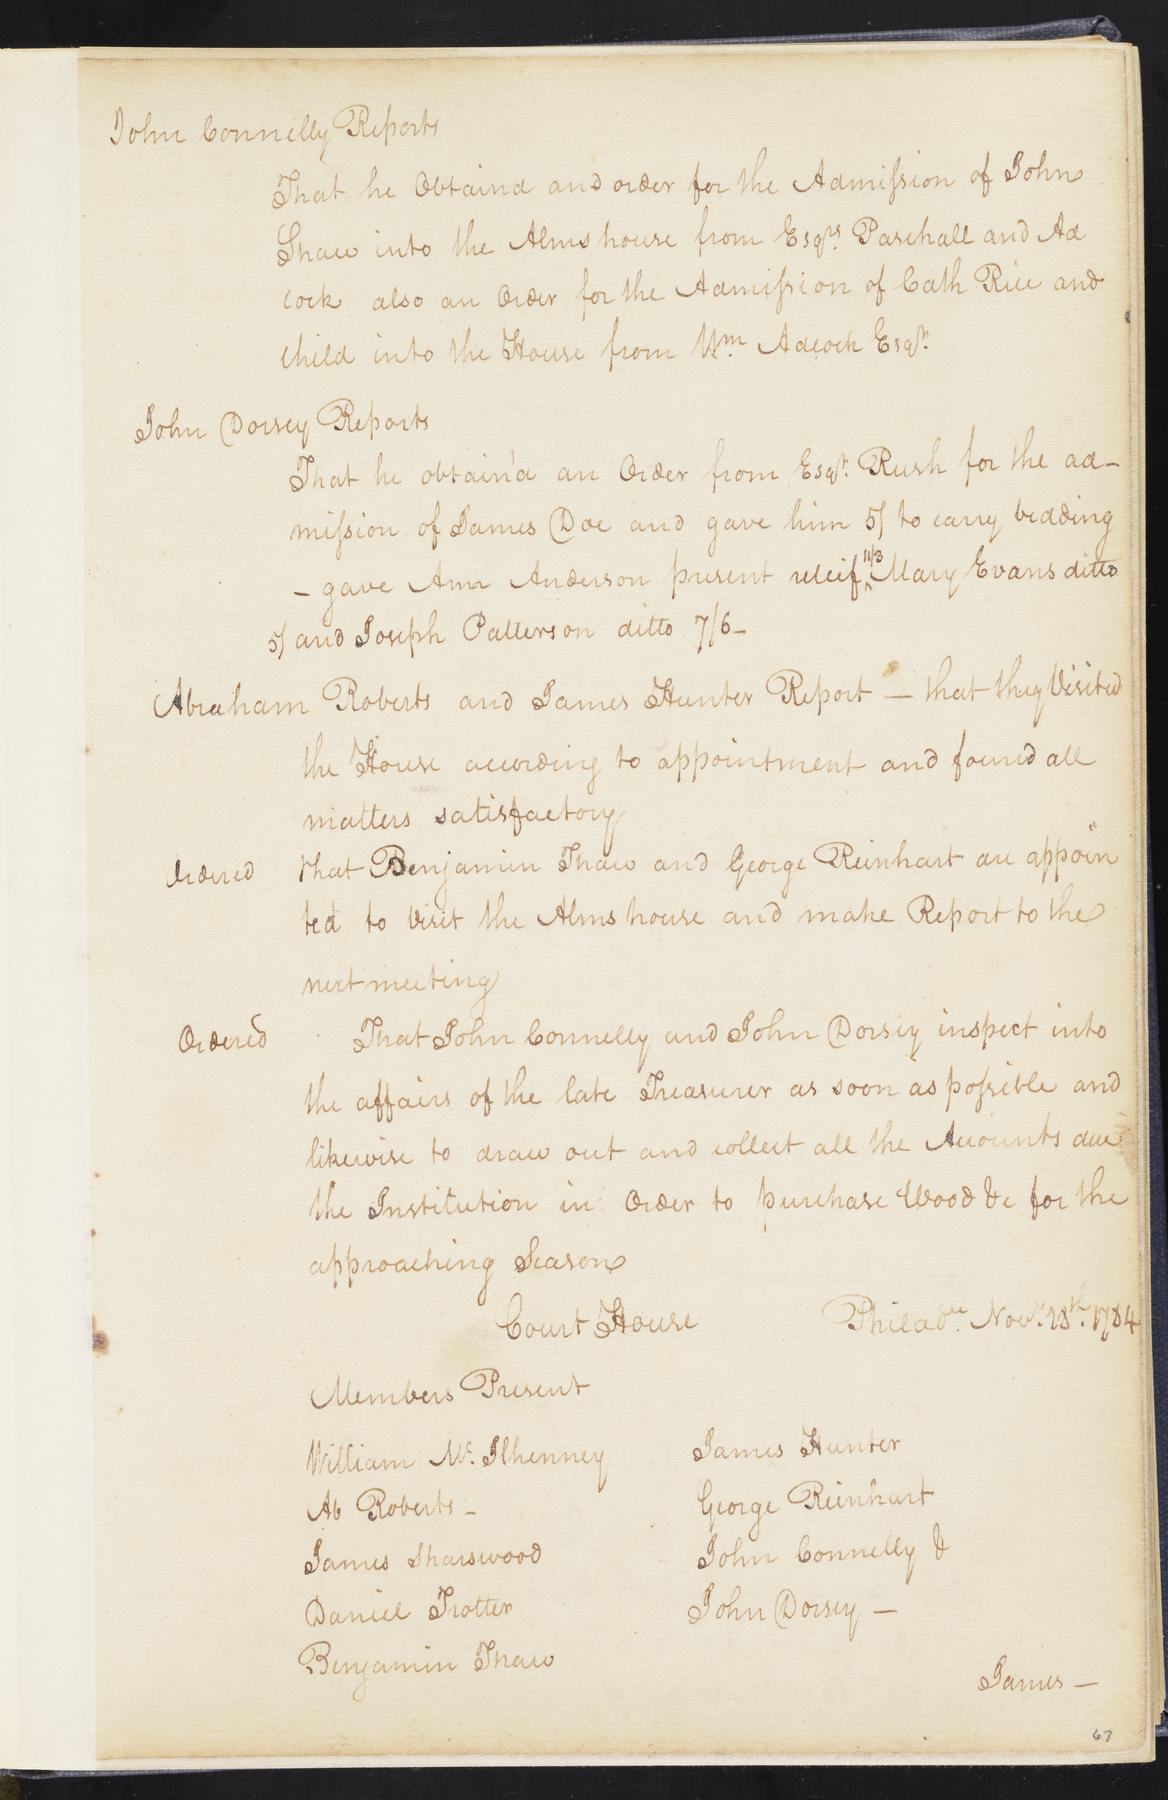 John Connelly Reports
That he Obtaind and order for the Admission of John
Shaw into the Alms house from Esqrs. Paschall and Ad
cock also an Order for the Admission of Cath Rice and
child into the House from Wm. Adcock Esqr.
John Dorsey Reports
That he obtain'd an Order from Esqr. Rush for the ad-
mission of James Doe and gave him 5/ to carry bedding
- gave Ann Anderson present releif ^ 11/3 Mary Evans ditto
5/ and Joseph Patterson ditto 7/6-
Abraham Roberts and James Hunter Report - that they Visited
the House according to appointment and found all
matters satisfactory
Ordered that Benjamin Thaw and George Reinhart are appoin"
ted to visit the Alms house and make Report to the
next meeting
Ordered That John Connelly and John Dorsey inspect into
the affairs of the late Treasurer as soon as possible and
likewise to draw out and collect all the Accounts due
the Institution in Order to purchase Wood &c for the
approaching Season
Court House Philada. Novr. 18th. 1784
Members Present
William Mc. Ilhenney James Hunter
Ab Roberts - George Reinhart
James Sharswood John Connelly &
Daniel Trotter John Dorsey -
Benjamin Thaw
James -
67